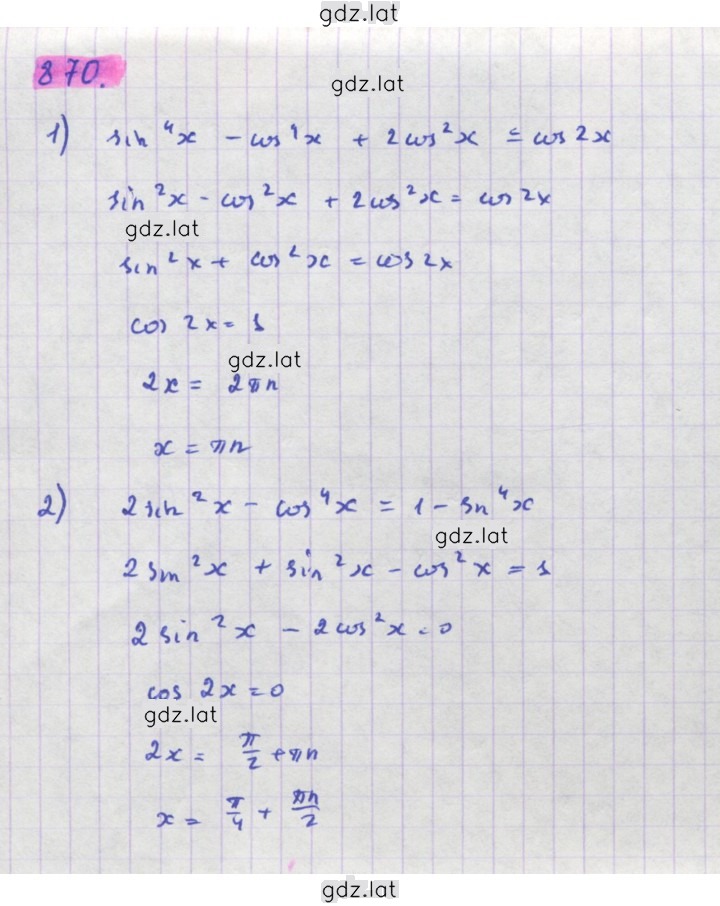 gdz.lat
870.
gdz.lat
1) sin⁴x - cos⁴x + 2cos²x = cos2x
sin²x - cos²x + 2cos²x = cos2x
gdz.lat
sin²x + cos²x = cos2x
cos 2x = 1
gdz.lat
2x = 2πn
x = πn
2) 2sin²x - cos⁴x = 1 - sin⁴x
gdz.lat
2sin²x + sin²x - cos²x = 1
2sin²x - 2cos²x = 0
cos 2x = 0
gdz.lat
2x = π/2 + πn
x = π/4 + πn/2
gdz.lat